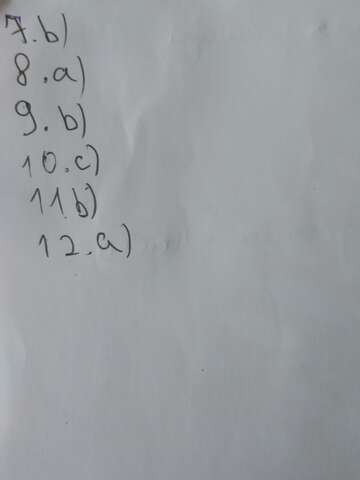 7.b)
8.a)
9.b)
10.c)
11.b)
12.a)